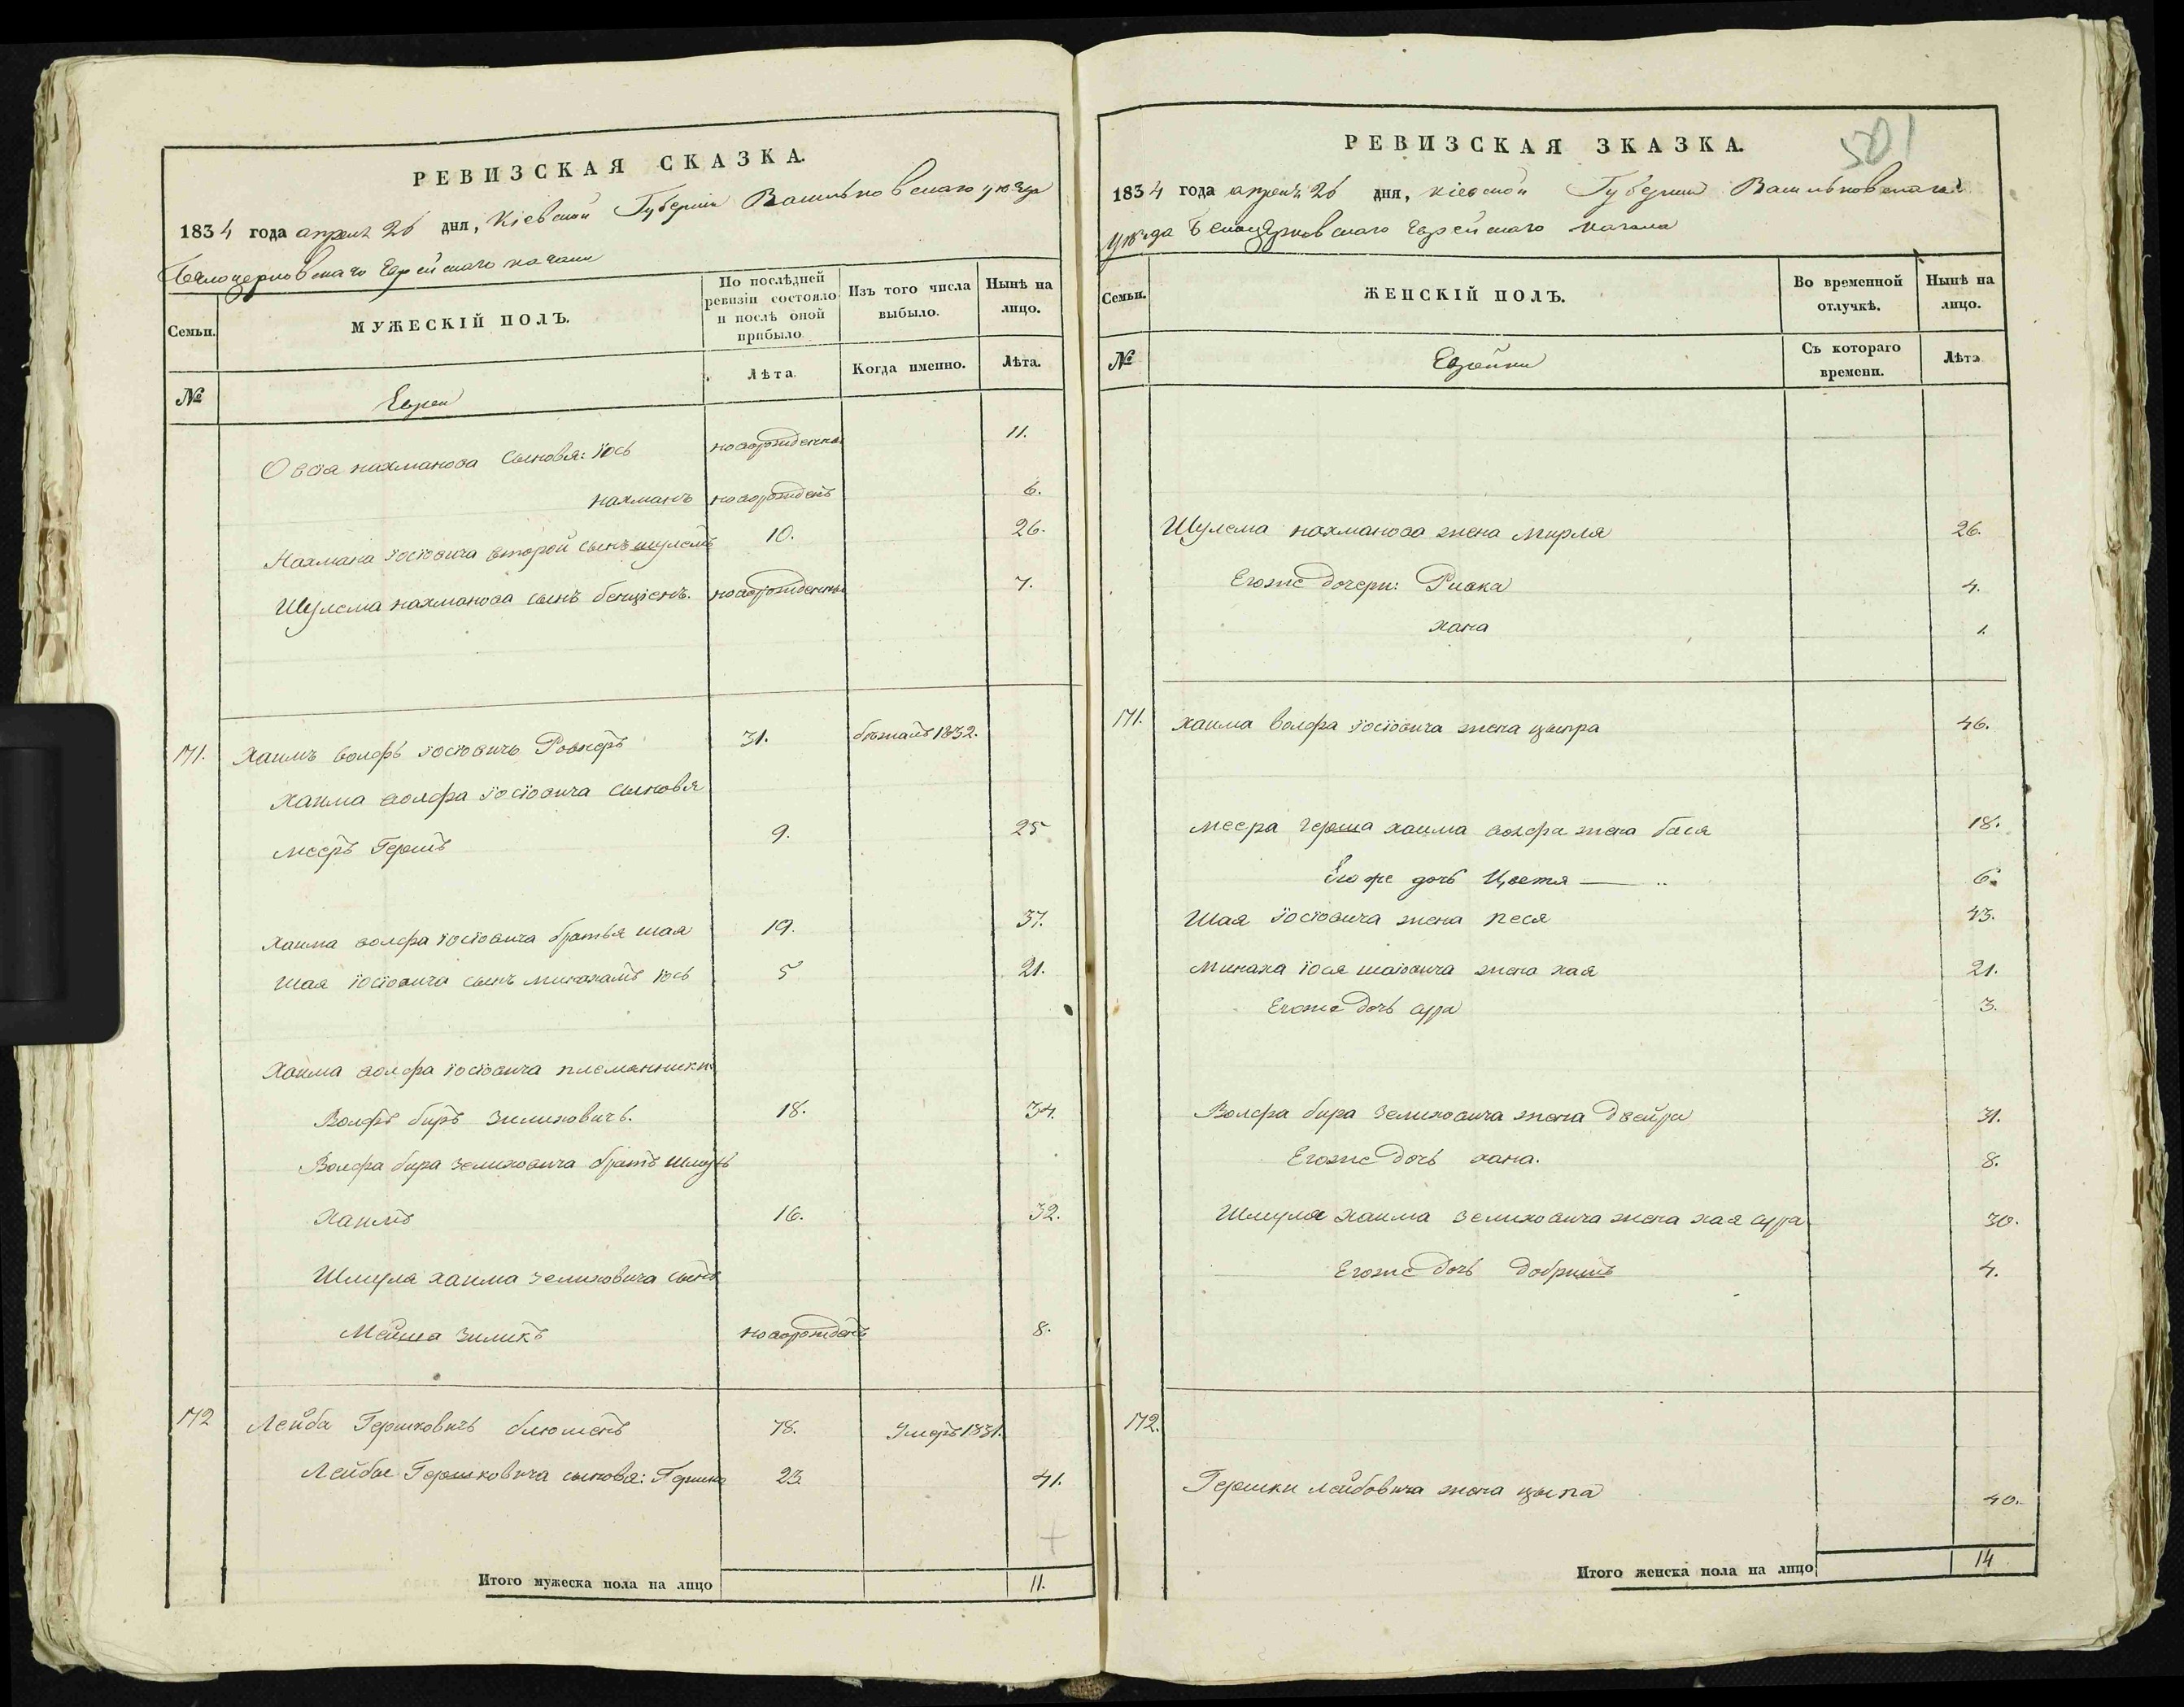 РЕВИЗСКАЯ СКАЗКА.
1834 года апреля 26 дня, Кіевской Губерніи Васильковскаго уезда
Белоцерковскаго Еврейскаго кагала
Семьи.
МУЖЕСКІЙ ПОЛЪ.
По послѣдней ревизіи состояло и послѣ оной прибыло.
Изъ того числа выбыло.
Нынѣ на лицо.
№
Евреи
Лѣта.
Когда именно.
Лѣта.
Овсея нахманова сыновья: Іось новорожденны 11.
нахманъ новорожденъ 6.
Нахмана Іосіовича второй сынъ шулемъ 10. 26.
Шулема нахманова сынъ бенціенъ. новорожденны 7.
171. Хаимъ волфъ Іосіовичъ Ровнеръ 31. бѣжалъ 1832.
Хаима волфа Іосіовича сыновья
мееръ Гершъ 9. 25
Хаима волфа Іосіовича братья шая 19. 37.
Шая Іосіовича сынъ минахамъ Іось 5 21.
Хаима волфа Іосіовича племянники:
Волфъ биръ Зилиховичъ. 18. 34.
Волфа бира Зелиховича братъ Шмуль
Хаимъ 16. 32.
Шмуля хаима Зелиховича сынъ
Мейша Зиликъ новорожденъ 8.
172 Лейба Гершковичъ блюменъ 78. Умеръ 1831.
Лейбы Гершковича сыновья: Гершко 23. 41.
Итого мужеска пола на лицо 11.
501
РЕВИЗСКАЯ ЗКАЗКА.
1834 года апреля 26 дня, Кіевской Губерніи Васильковскаго
уезда Белоцерковскаго Еврейскаго кагала
Семьи.
ЖЕНСКІЙ ПОЛЪ.
Во временной отлучкѣ.
Нынѣ на лицо.
№
Еврейки
Съ котораго времени.
Лѣта
Шулема нахманова жена мирля 26.
Егоже дочери: Ривка 4.
хана 1.
171. Хаима волфа Іосіовича жена ципра 46.
меера герша хаима волфа жена бася 18.
Его же дочь Цветя — 6.
Шая Іосіовича жена песя 43.
Минаха Іося шаіовича жена хая 21.
Егоже дочь сура 3.
Волфа бира Зелиховича жена Двейра 31.
Егоже дочь хана. 8.
Шмуля хаима Зелиховича жена хая сура 30.
Егоже дочь добришъ 4.
172.
Гершки лейбовича жена ципа 40.
Итого женска пола на лицо 14